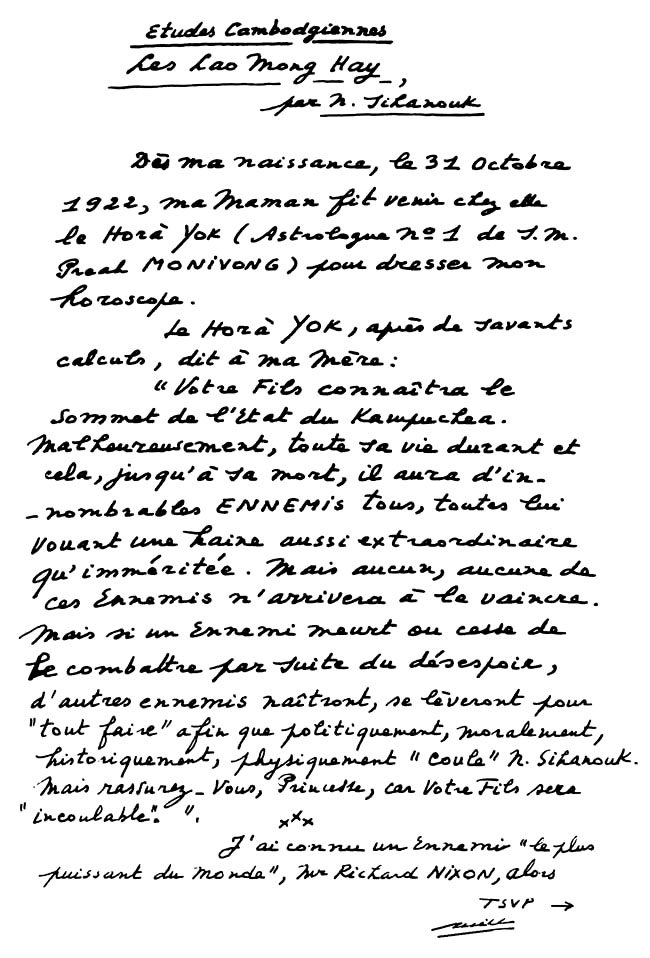 Etudes Cambodgiennes
Les Lao Mong Hay,
par N. Sihanouk
Dès ma naissance, le 31 Octobre
1922, ma Maman fit venir chez elle
le Horà Yok (Astrologue nº 1 de S.M.
Preah MONIVONG) pour dresser mon
horoscope.
Le Horà YOK, après de savants
calculs, dit à ma Mère :
"Votre Fils connaîtra le
Sommet de l'Etat du Kampuchea.
Malheureusement, toute sa vie durant et
cela, jusqu'à sa mort, il aura d'in-
-nombrables ENNEMIS tous, toutes lui
vouant une haine aussi extraordinaire
qu'imméritée. Mais aucun, aucune de
ces Ennemis n'arrivera à le vaincre.
Mais si un Ennemi meurt ou cesse de
le combattre par suite du désespoir,
d'autres ennemis naîtront, se lèveront pour
"tout faire" afin que politiquement, moralement,
historiquement, physiquement "coule" N. Sihanouk.
Mais rassurez-Vous, Princesse, car Votre Fils sera
"incoulable". ".
xxx
J'ai connu un Ennemi "le plus
puissant du Monde", Mr Richard NIXON, alors
TSVP →